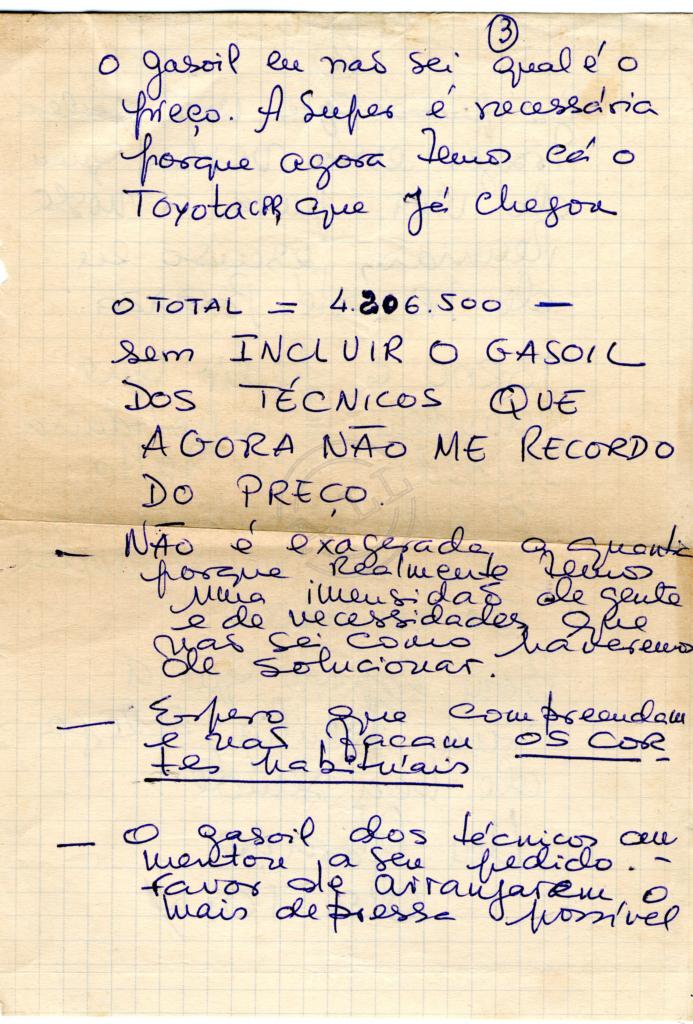 3
O gasoil eu não sei qual é o
preço. A Super é necessária
porque agora temos cá o
Toyota que já chegou
O TOTAL = 4.206.500 —
sem INCLUIR O GASOIL
DOS TÉCNICOS QUE
AGORA NÃO ME RECORDO
DO PREÇO.
— NÃO é exagerada a quantia
porque Realmente temos
uma imensidão de gente
e de necessidades que
não sei como haveremos
de solucionar.
— Espero que compreendam
e não façam OS COR
tes habituais
— O gasoil dos técnicos au
mentou a seu pedido. -
favor de arranjarem o
mais depressa possível